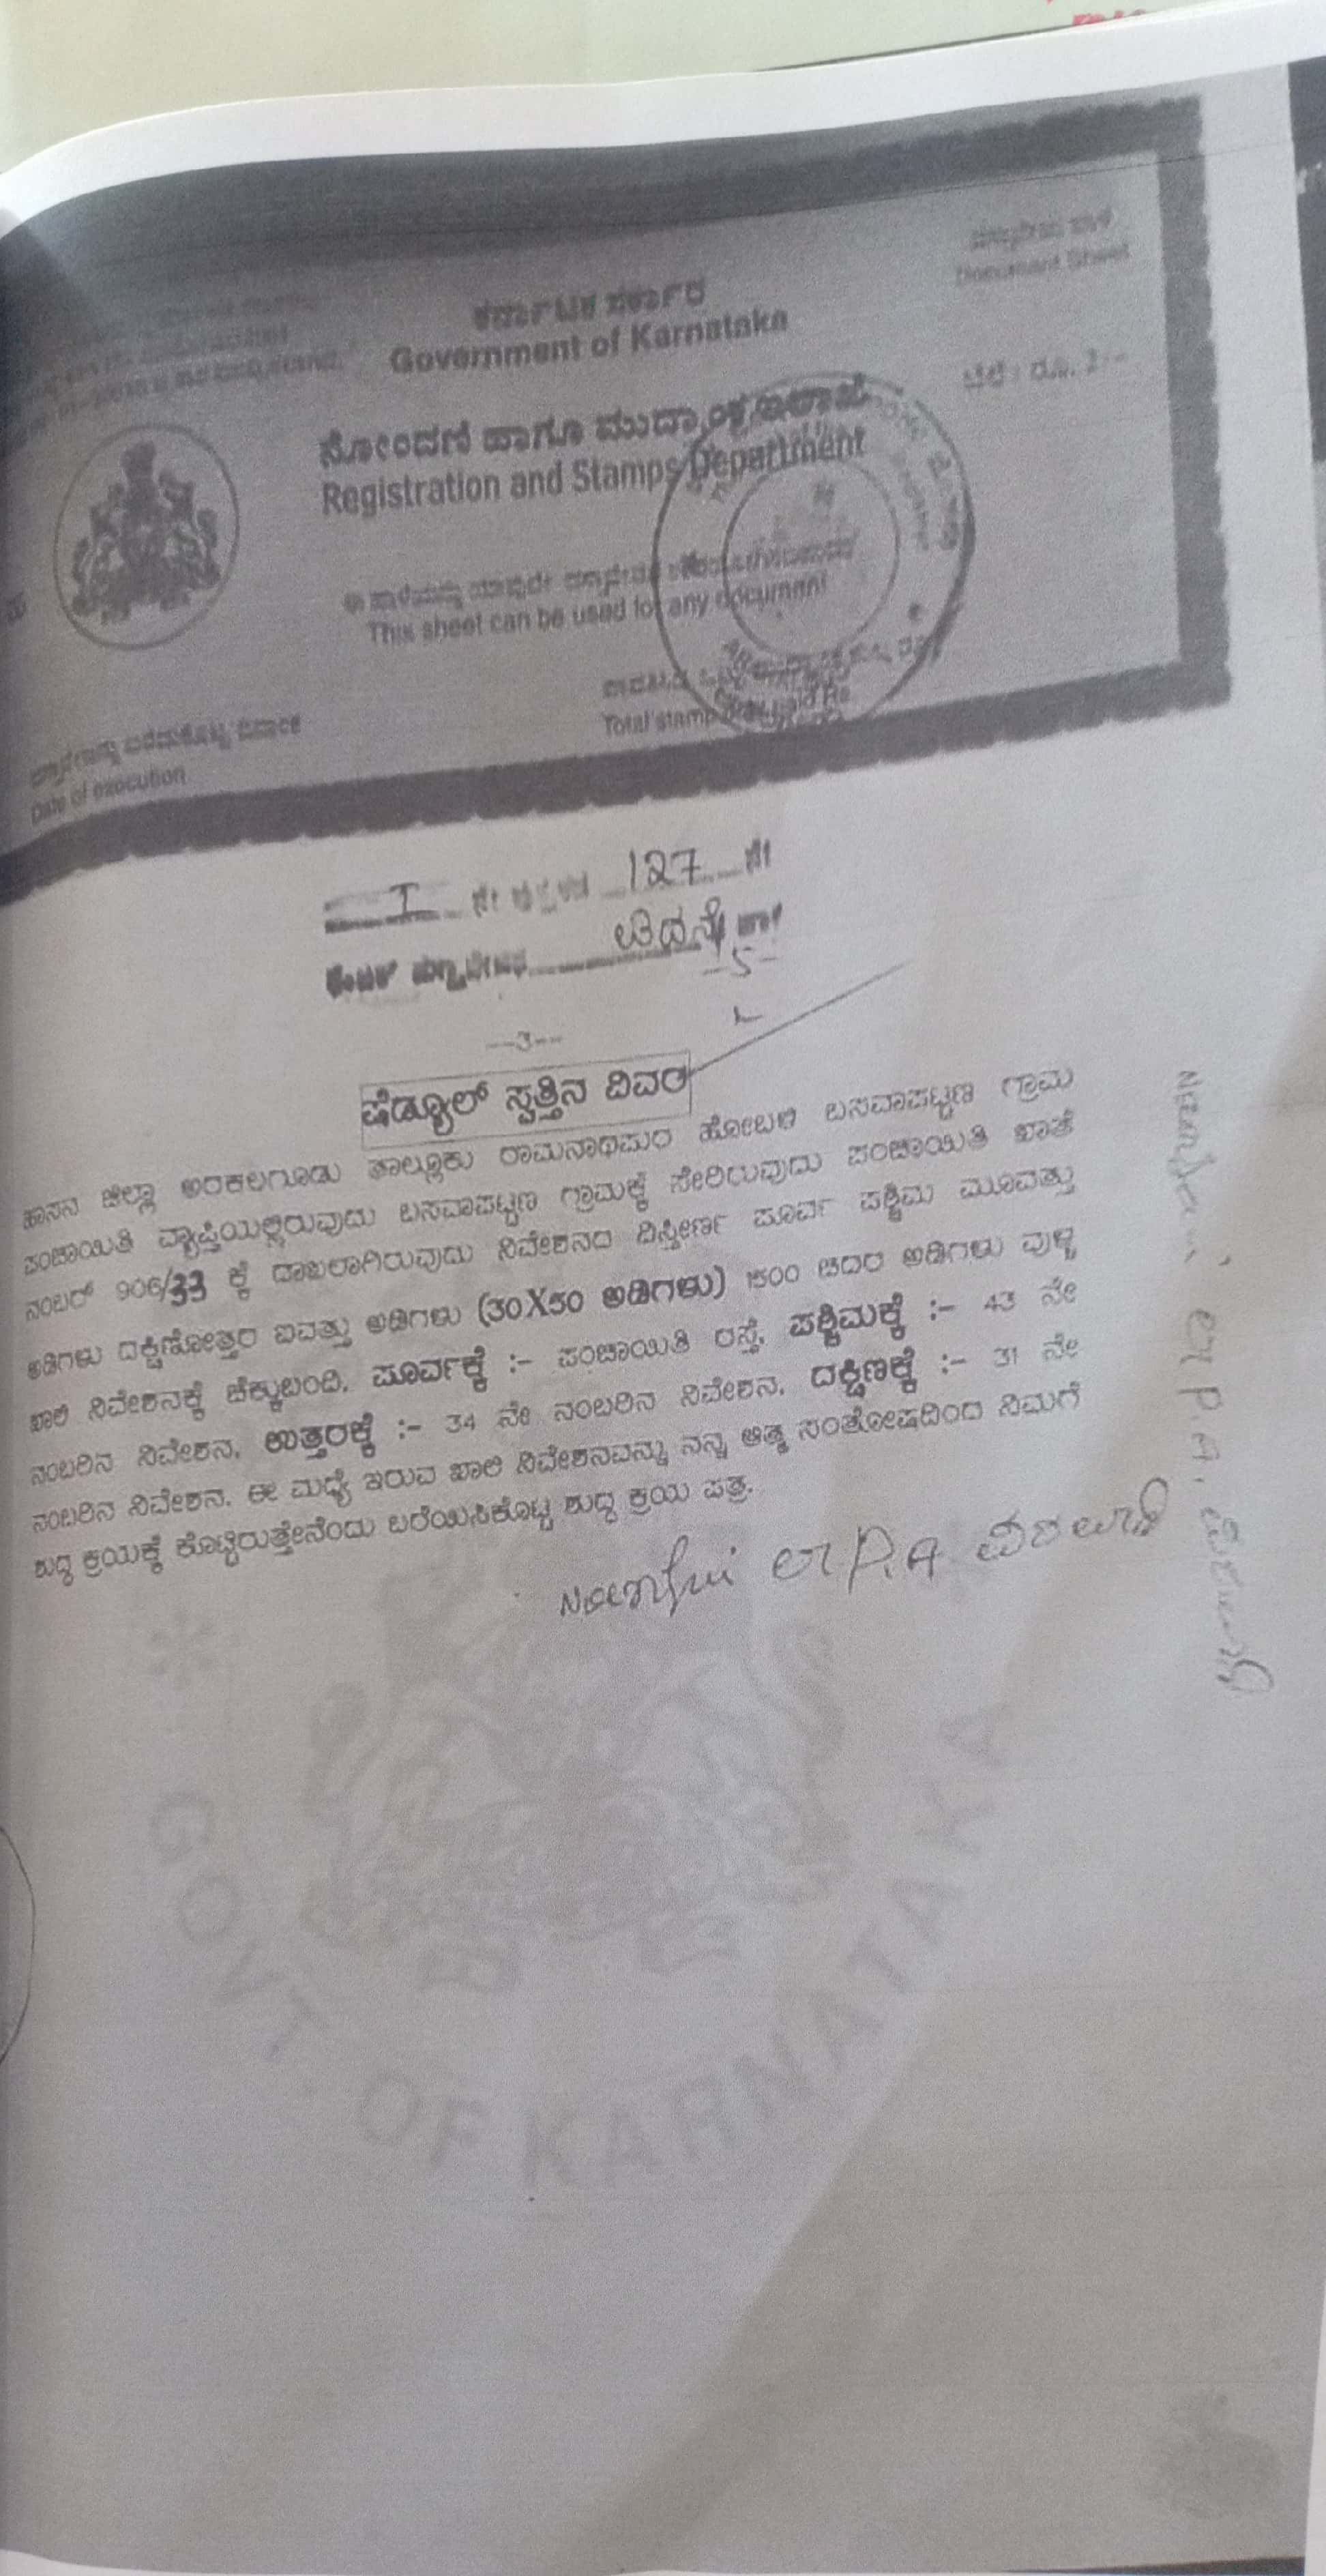 ದಸ್ತಾವೇಜು ಹಾಳೆ
Document Sheet
ಕರ್ನಾಟಕ ಸರ್ಕಾರ
Government of Karnataka
ಬೆಲೆ : ರೂ. 2/-
ನೋಂದಣಿ ಹಾಗೂ ಮುದ್ರಾಂಕ ಇಲಾಖೆ
Registration and Stamps Department
ಈ ಹಾಳೆಯನ್ನು ಯಾವುದೇ
This sheet can be used for any document
Total stamp duty paid Rs
Date of execution
I ನೇ ಪುಸ್ತಕದ 127 ನೇ
ನಂಬರ್ ದಸ್ತಾವೇಜಿನ ಐದನೇ
-5-
--3--
ಷೆಡ್ಯೂಲ್ ಸ್ವತ್ತಿನ ವಿವರ
ಹಾಸನ ಜಿಲ್ಲಾ ಅರಕಲಗೂಡು ತಾಲ್ಲೂಕು ರಾಮನಾಥಪುರ ಹೋಬಳಿ ಬಸವಾಪಟ್ಟಣ ಗ್ರಾಮ
ಪಂಚಾಯಿತಿ ವ್ಯಾಪ್ತಿಯಲ್ಲಿರುವುದು ಬಸವಾಪಟ್ಟಣ ಗ್ರಾಮಕ್ಕೆ ಸೇರಿರುವುದು ಪಂಚಾಯಿತಿ ಖಾತೆ
ನಂಬರ್ 906/33 ಕ್ಕೆ ದಾಖಲಾಗಿರುವುದು ನಿವೇಶನದ ವಿಸ್ತೀರ್ಣ ಪೂರ್ವ ಪಶ್ಚಿಮ ಮೂವತ್ತು
ಅಡಿಗಳು ದಕ್ಷಿಣೋತ್ತರ ಐವತ್ತು ಅಡಿಗಳು (30X50 ಅಡಿಗಳು) 1500 ಚದರ ಅಡಿಗಳು ವುಳ್ಳ
ಖಾಲಿ ನಿವೇಶನಕ್ಕೆ ಚೆಕ್ಕುಬಂದಿ. ಪೂರ್ವಕ್ಕೆ :- ಪಂಚಾಯಿತಿ ರಸ್ತೆ, ಪಶ್ಚಿಮಕ್ಕೆ :- 43 ನೇ
ನಂಬರಿನ ನಿವೇಶನ, ಉತ್ತರಕ್ಕೆ :- 34 ನೇ ನಂಬರಿನ ನಿವೇಶನ, ದಕ್ಷಿಣಕ್ಕೆ :- 31 ನೇ
ನಂಬರಿನ ನಿವೇಶನ. ಈ ಮಧ್ಯೆ ಇರುವ ಖಾಲಿ ನಿವೇಶನವನ್ನು ನನ್ನ ಆತ್ಮ ಸಂತೋಷದಿಂದ ನಿಮಗೆ
ಶುದ್ಧ ಕ್ರಯಕ್ಕೆ ಕೊಟ್ಟಿರುತ್ತೇನೆಂದು ಬರೆಯಿಸಿಕೊಟ್ಟ ಶುದ್ಧ ಕ್ರಯ ಪತ್ರ.
P.A
P.A
GOVT. OF KARNATAKA